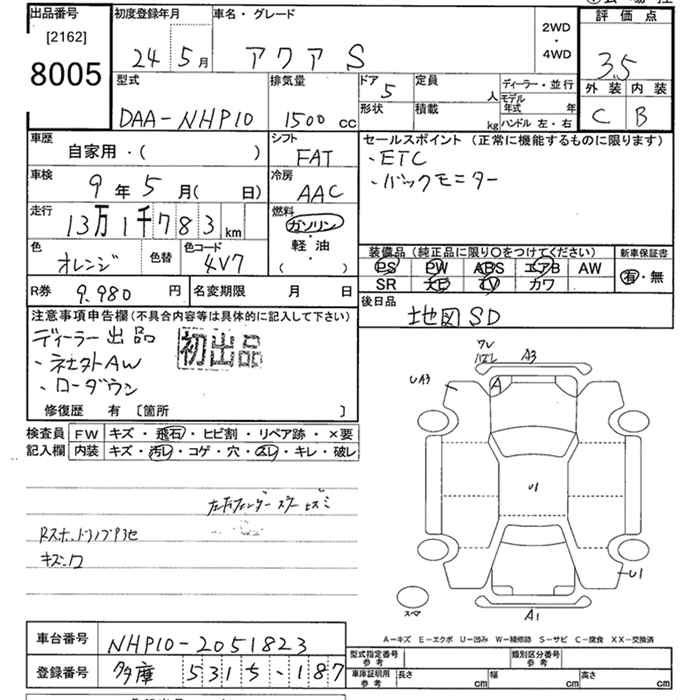 出品番号
[2162]
8005
初度登録年月
24年5月
車名・グレード
アクア S
2WD
・
4WD
評価点
3.5
外装 内装
C B
型式
DAA-NHP10
排気量
1500cc
ドア
5
形状
定員
人
積載
kg
ディーラー・並行
モデル年式 年
ハンドル 左・右
車歴
自家用・( )
シフト
FAT
車検
9年5月( 日)
冷房
AAC
走行
13万1千783km
燃料
ガソリン
・
軽油
( )
色
オレンジ
色替
色コード
4V7
セールスポイント(正常に機能するものに限ります)
・ETC
・バックモニター
装備品(純正品に限り○をつけてください)
PS PW ABS エアB AW
SR ナビ TV カワ
新車保証書
有・無
R券 9.980円
名変期限 月 日
後日品
地図SD
注意事項申告欄(不具合内容等は具体的に記入して下さい)
ディーラー出品
初出品
・社外AW
・ローダウン
修復歴 有〔箇所 〕
検査員記入欄
FW キズ・飛石・ヒビ割・リペア跡・×要
内装 キズ・汚レ・コゲ・穴・スレ・キレ・破レ
キズ
UA3
A3
A
U1
U1
A1
スペア
A-キズ E-エクボ U-凹み W-補修跡 S-サビ C-腐食 XX-交換済
車台番号
NHP10-2051823
登録番号
多摩 531 ち -187
型式指定番号
参考
類別区分番号
参考
車庫証明用
参考
長さ cm
幅 cm
高さ cm